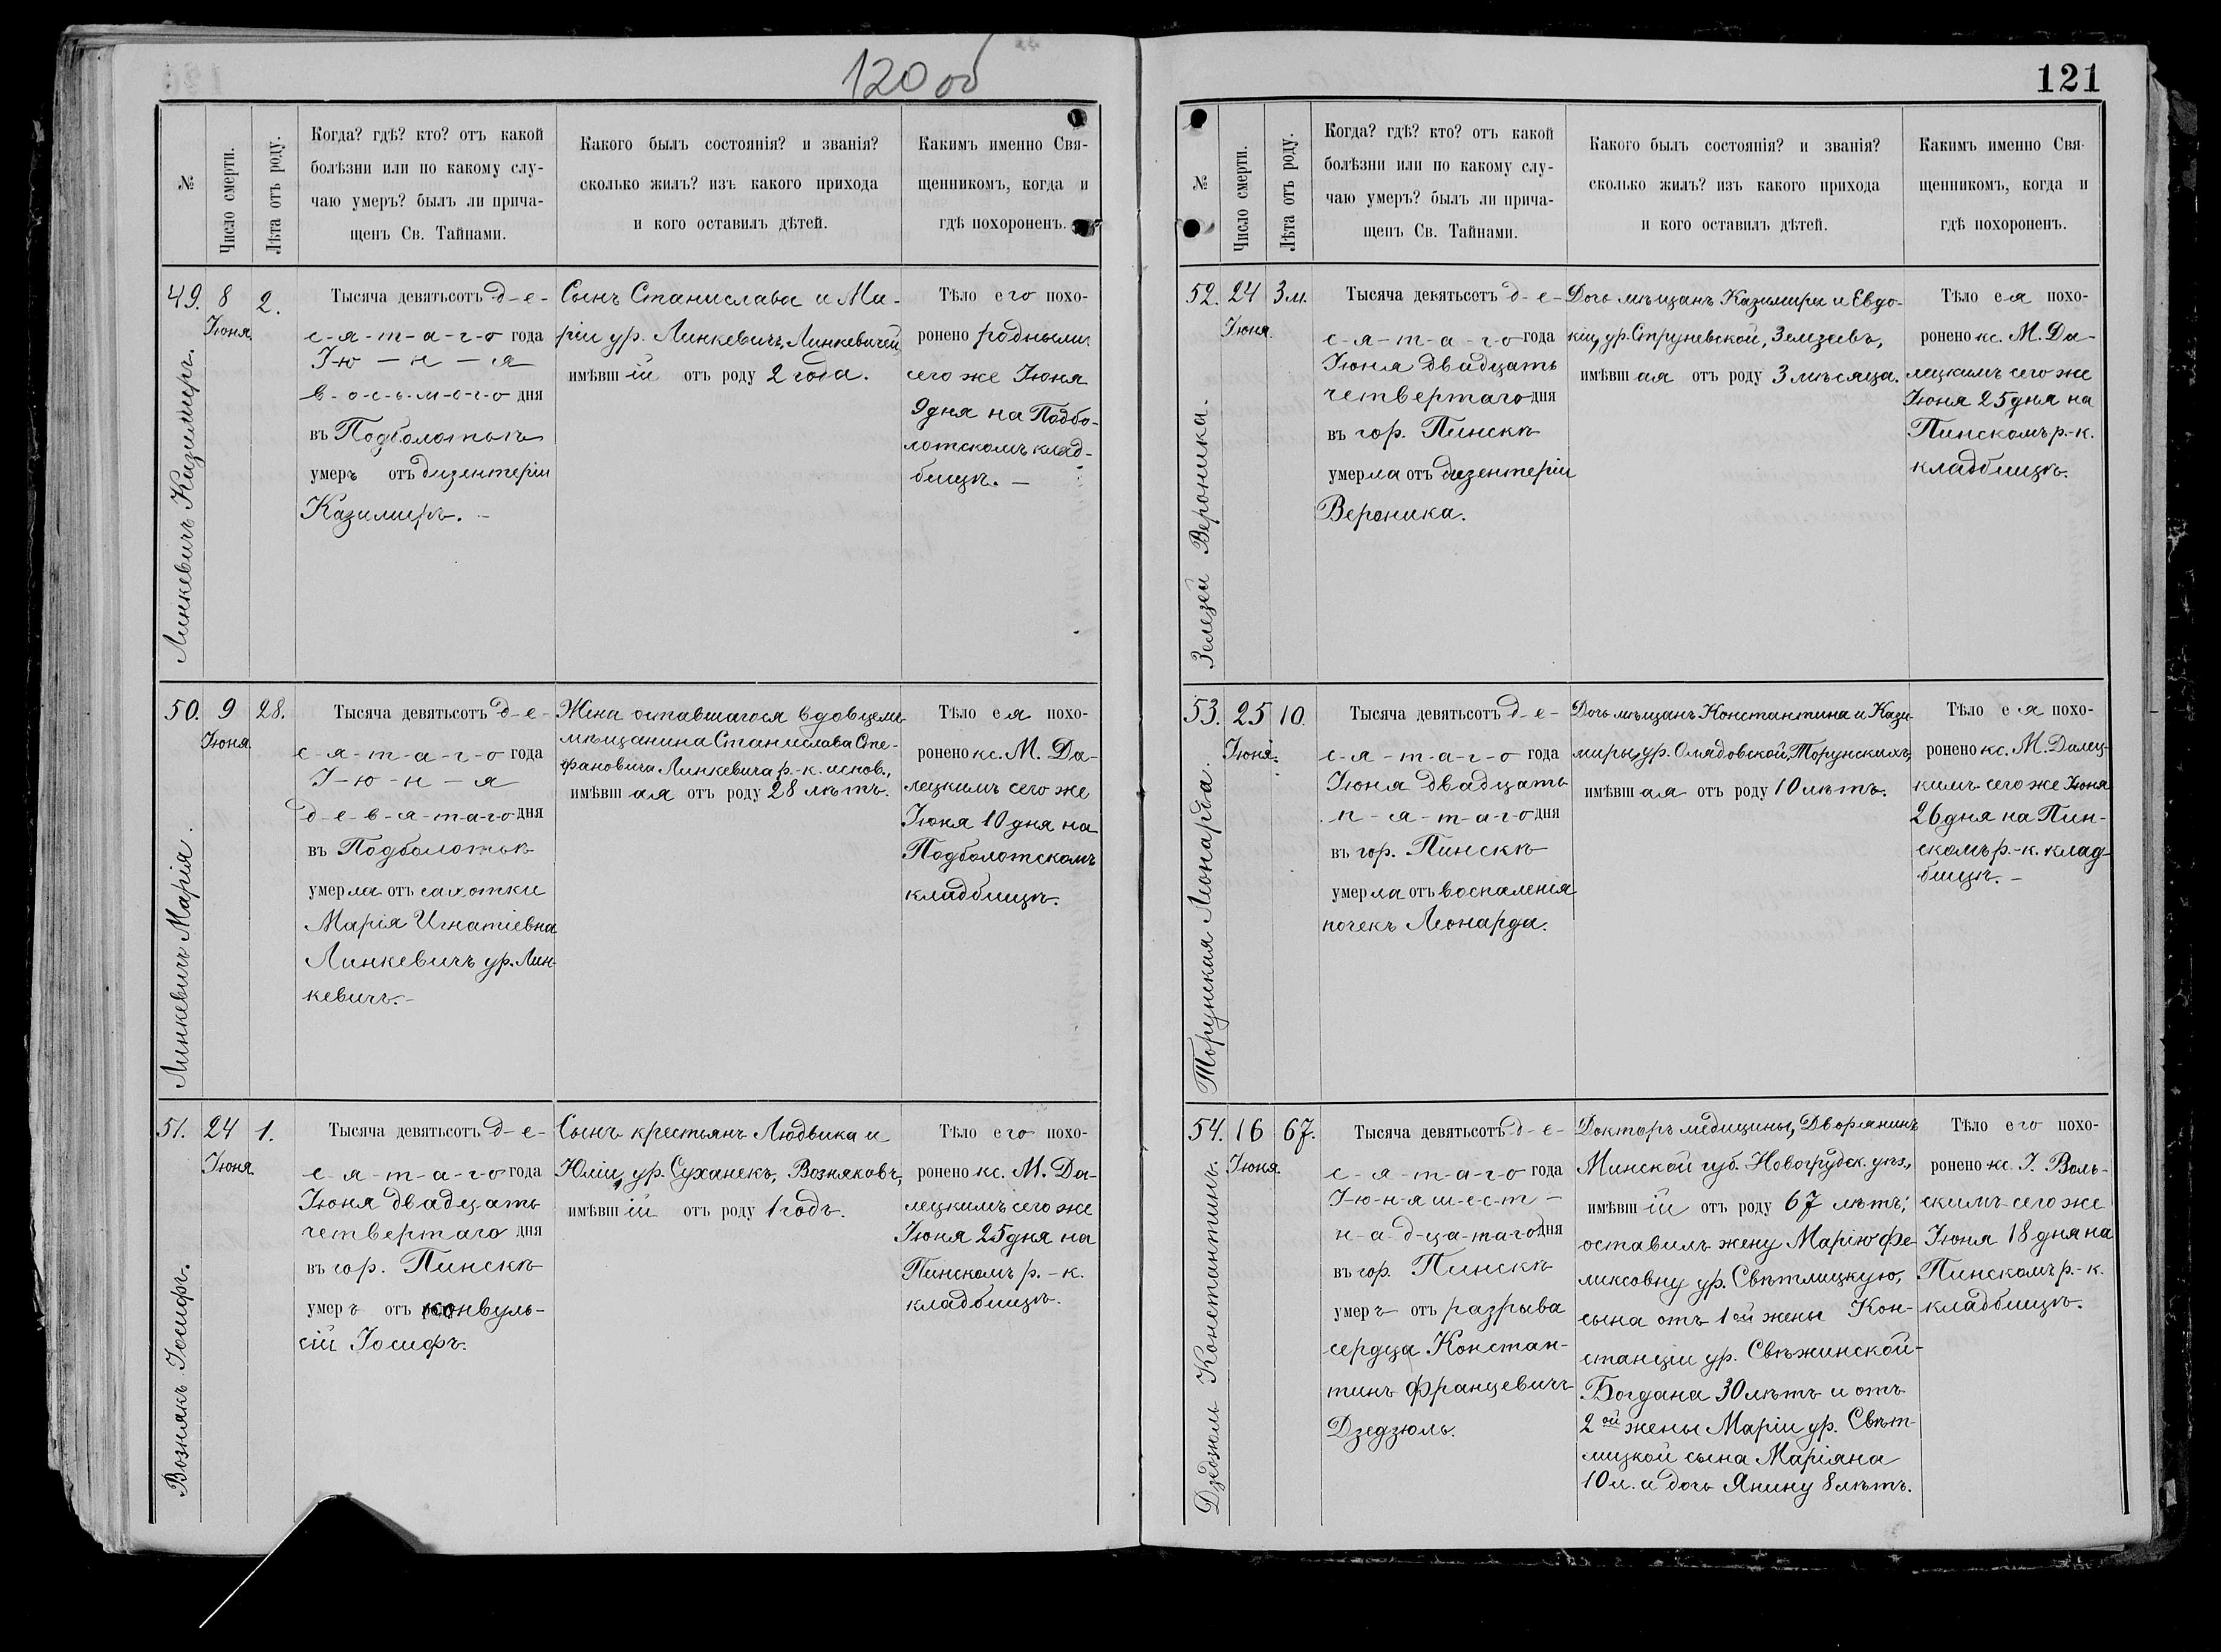 120 об
№
Число смерти.
Лѣта отъ роду.
Когда? гдѣ? кто? отъ какой
болѣзни или по какому слу-
чаю умеръ? былъ ли прича-
щенъ Св. Тайнами.
Какого былъ состоянія? и званія?
сколько жилъ? изъ какого прихода
и кого оставилъ дѣтей.
Какимъ именно Свя-
щенникомъ, когда и
гдѣ похороненъ.
49.
Линкевичъ Казимиръ.
8
Іюня
2.
Тысяча девятьсотъ д-е-
с-я-т-а-г-о года
І-ю-н-я
в-о-с-ь-м-о-г-о дня
въ Подболотьѣ
умеръ отъ дизентеріи
Казимиръ. -
Сынъ Станислава и Ма-
ріи ур. Линкевичъ, Линкевичей,
имѣвшій отъ роду 2 года.
Тѣло его похо-
ронено родными
сего же Іюня
9 дня на Подбо-
лотскомъ клад-
бищѣ. -
50.
Линкевичъ Марія.
9
Іюня
28.
Тысяча девятьсотъ д-е-
с-я-т-а-г-о года
І-ю-н-я
д-е-в-я-т-а-г-о дня
въ Подболотьѣ
умерла отъ сахотки
Марія Игнатіевна
Линкевичъ ур. Лин-
кевичъ. -
Жена оставшагося вдовцемъ
мѣщанина Станислава Сте-
фановича Линкевича р.-к. испов.,
имѣвшая отъ роду 28 лѣтъ.
Тѣло ея похо-
ронено кс. М. Да-
лецкимъ сего же
Іюня 10 дня на
Подболотскомъ
кладбищѣ.
51.
Вознякъ Іосифъ.
24
Іюня
1.
Тысяча девятьсотъ д-е-
с-я-т-а-г-о года
Іюня двадцать
четвертаго дня
въ гор. Пинскѣ
умеръ отъ конвуль-
сій Іосифъ.
Сынъ крестьянъ Людвика и
Юліи, ур. Суханекъ, Возняковъ,
имѣвшій отъ роду 1 годъ.
Тѣло его похо-
ронено кс. М. Да-
лецкимъ сего же
Іюня 25 дня на
Пинскомъ р.-к.
кладбищѣ.
121
№
Число смерти.
Лѣта отъ роду.
Когда? гдѣ? кто? отъ какой
болѣзни или по какому слу-
чаю умеръ? былъ ли прича-
щенъ Св. Тайнами.
Какого былъ состоянія? и званія?
сколько жилъ? изъ какого прихода
и кого оставилъ дѣтей.
Какимъ именно Свя-
щенникомъ, когда и
гдѣ похороненъ.
52.
Вероника.
24
Іюня
3 м.
Тысяча девятьсотъ д-е-
с-я-т-а-г-о года
Іюня двадцать
четвертаго дня
въ гор. Пинскѣ
умерла отъ дизентеріи
Вероника.
Дочь мѣщанъ Казимира и Евдо-
кіи, ур. Струневской,
имѣвшая отъ роду 3 мѣсяца.
Тѣло ея похо-
ронено кс. М. Да-
лецкимъ сего же
Іюня 25 дня на
Пинскомъ р.-к.
кладбищѣ.
53.
Торунская Леонарда.
25
Іюня.
10.
Тысяча девятьсотъ д-е-
с-я-т-а-г-о года
Іюня двадцать
п-я-т-а-г-о дня
въ гор. Пинскѣ
умерла отъ воспаленія
почекъ Леонарда.
Дочь мѣщанъ Константина и Кази-
миры, ур. Олядовской, Торунскихъ,
имѣвшая отъ роду 10 лѣтъ.
Тѣло ея похо-
ронено кс. М. Далец-
кимъ сего же Іюня
26 дня на Пин-
скомъ р.-к. клад-
бищѣ. -
54.
Дзедзюль Константинъ.
16
Іюня.
67.
Тысяча девятьсотъ д-е-
с-я-т-а-г-о года
І-ю-н-я ш-е-с-т-
н-а-д-ц-а-т-а-г-о дня
въ гор. Пинскѣ
умеръ отъ разрыва
сердца Констан-
тинъ Францевичъ
Дзедзюль.
Докторъ медицины, Дворянинъ
Минской губ. Новогрудск. уѣз.,
имѣвшій отъ роду 67 лѣтъ;
оставилъ жену Марію Фе-
ликсовну ур. Свѣтлицкую,
сына отъ 1ой жены Кон-
станціи ур. Свѣжинской-
Богдана 30 лѣтъ и отъ
2ой жены Маріи ур. Свѣт-
лицкой сына Маріяна
10 л. и дочь Янину 8 лѣтъ.
Тѣло его похо-
ронено кс. І. Воль-
скимъ сего же
Іюня 18 дня на
Пинскомъ р.-к.
кладбищѣ.